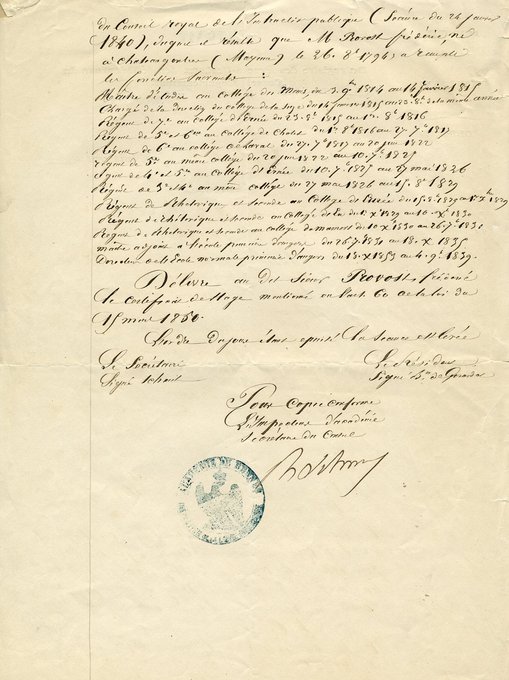 du Conseil royal de l'Instruction publique (Séance du 24 janvier
1840), duquel il résulte que M. Provost frédéric, né
à Chateaugontier (Mayenne) le 26. 8bre 1794, a rempli
les fonctions suivantes :
Maître d'études au collège du Mans, du 3. 9bre 1814 au 14 janvier 1815
Chargé de la du collège de du 14 janvier 1815 au 23. 8bre de la même année
Régent de 7e au collège d'Ernée du 23. 8bre 1815 au 1er 8bre 1816
Régent de 5e et 6me au Collège de du 1er 8bre 1816 au 27. 7bre 1817
Régent de 6e au collège de Laval du 27. 7bre 1817 au 20 juin 1822
régent de 5e au même collège du 20 juin 1822 au 10. 7bre 1825
régent de 4e et 5e au collège d'Ernée du 10. 7bre 1825 au 27 mai 1826
Régent de 3e et 4e au même collège du 27 mai 1826 au 15. 8bre 1829
Régent de Rhétorique et seconde au Collège de du 15. 8bre 1829 au 1er Xbre 1829
Régent de rhétorique et seconde au collège de la du 1er Xbre 1829 au 10. Xbre 1830
Régent de rhétorique et seconde au collège de mamers du 10 Xbre 1830 au 26. 7bre 1831
maître adjoint à l'école primaire d'angers du 26. 7bre 1831 au 18. Xbre 1835
Directeur de l'Ecole normale primaire d'angers du 18. Xbre 1835 au 4. 9bre 1839.
Délivre au Dit Sieur Provost, frédéric
le certificat de stage mentionné en l'art. 60 de la loi du
15 mars 1850.
L'ordre du jour étant épuisé la séance est levée
Le Secrétaire
Signé
Le Président
Signé
Pour Copie Conforme
L'Inspecteur d'académie
Secrétaire du Conseil